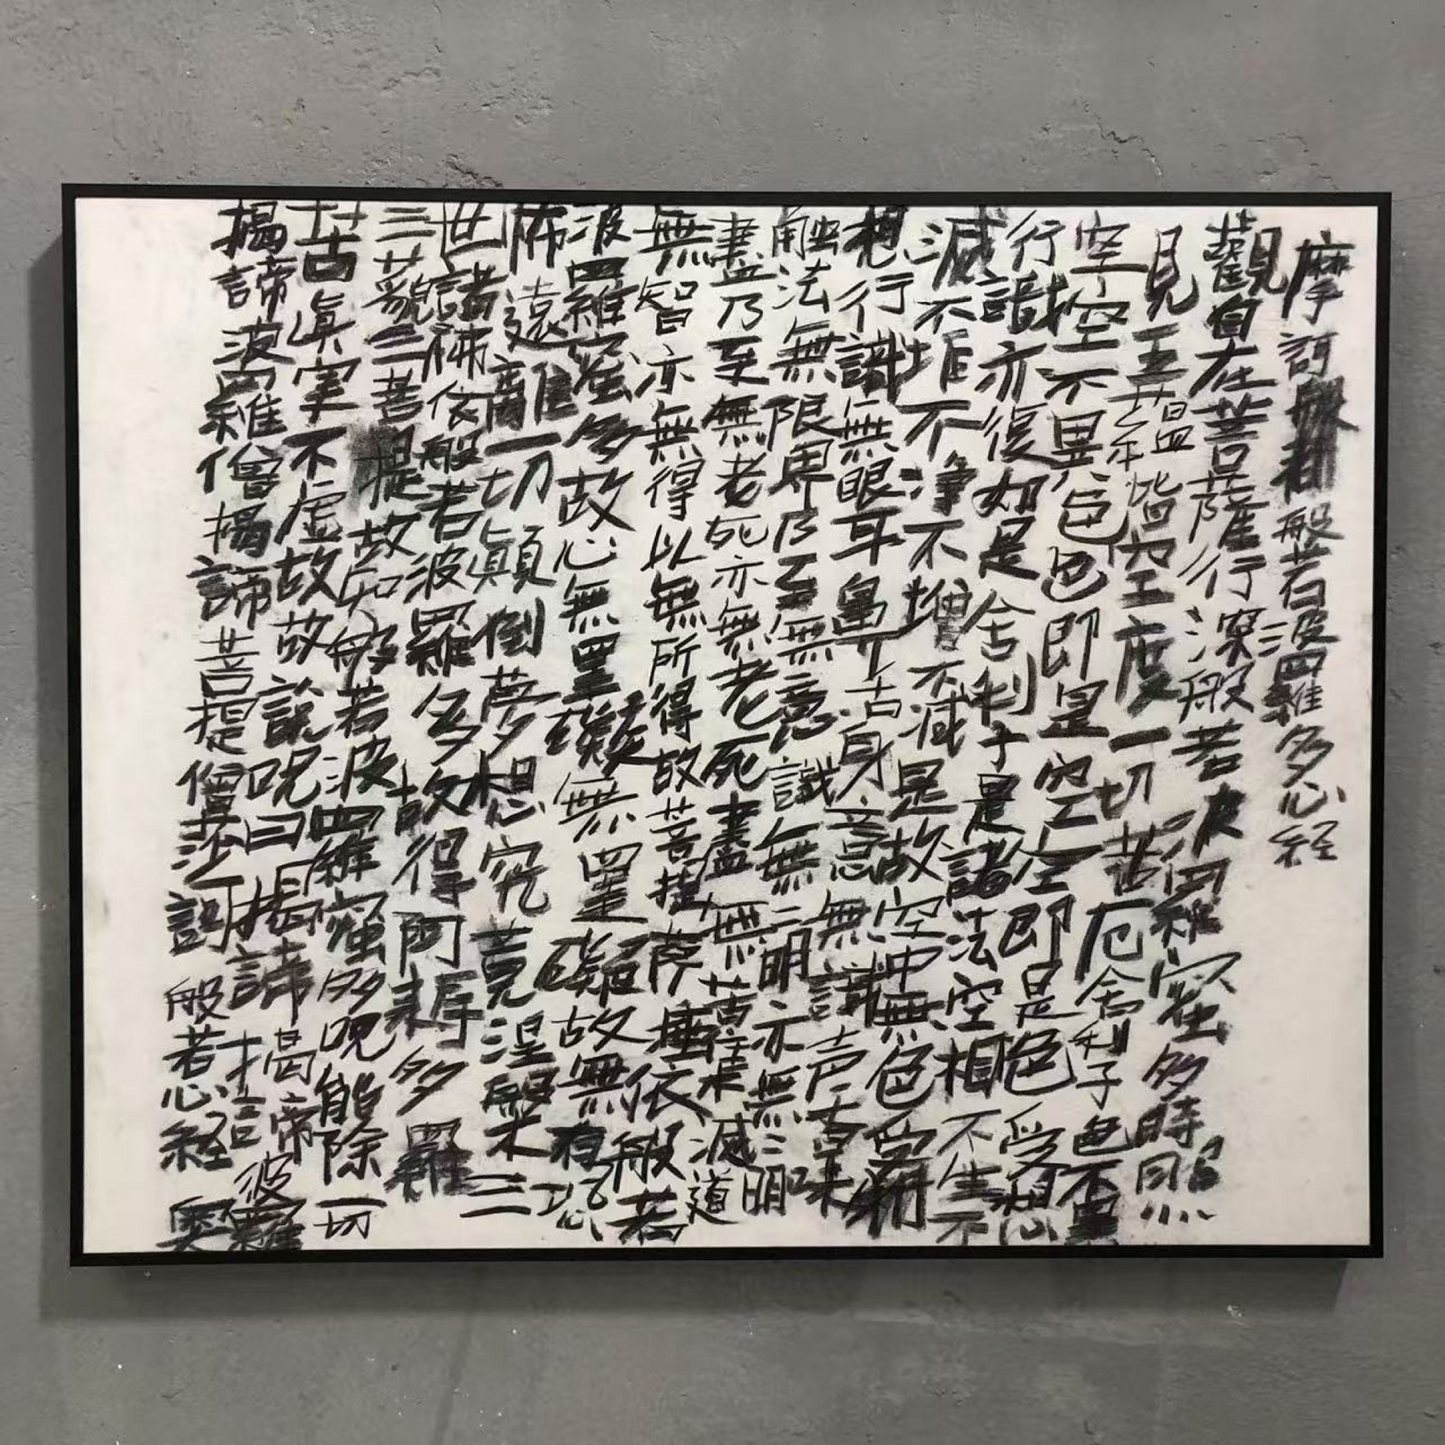 摩訶般若般若波羅多心経
觀自在菩薩行深般若波羅蜜多時照
見五蘊皆空度一切苦厄舎利子色不異
空空不異色色即是空空即是色受想
行識亦復如是舎利子是諸法空相不生不
滅不垢不浄不増不減是故空中無色受
想行識無眼耳鼻舌身意無識声香味
触法無限界乃至無意識無二明亦無二明
盡乃至無老死亦無老死盡無苦集滅道
無智亦無得以無所得故菩提薩埵依般若
波羅蜜多故心無罣礙無罣礙故無有恐
怖遠離一切顛倒夢想究竟涅槃三
世諸佛依般若波羅多故得阿耨多羅
三藐三菩提故知般若波羅蜜多呪能除一切
苦真実不虚故故説呪曰揭諦揭諦波羅
揭諦波羅僧揭諦菩提僧莎訶般若心経